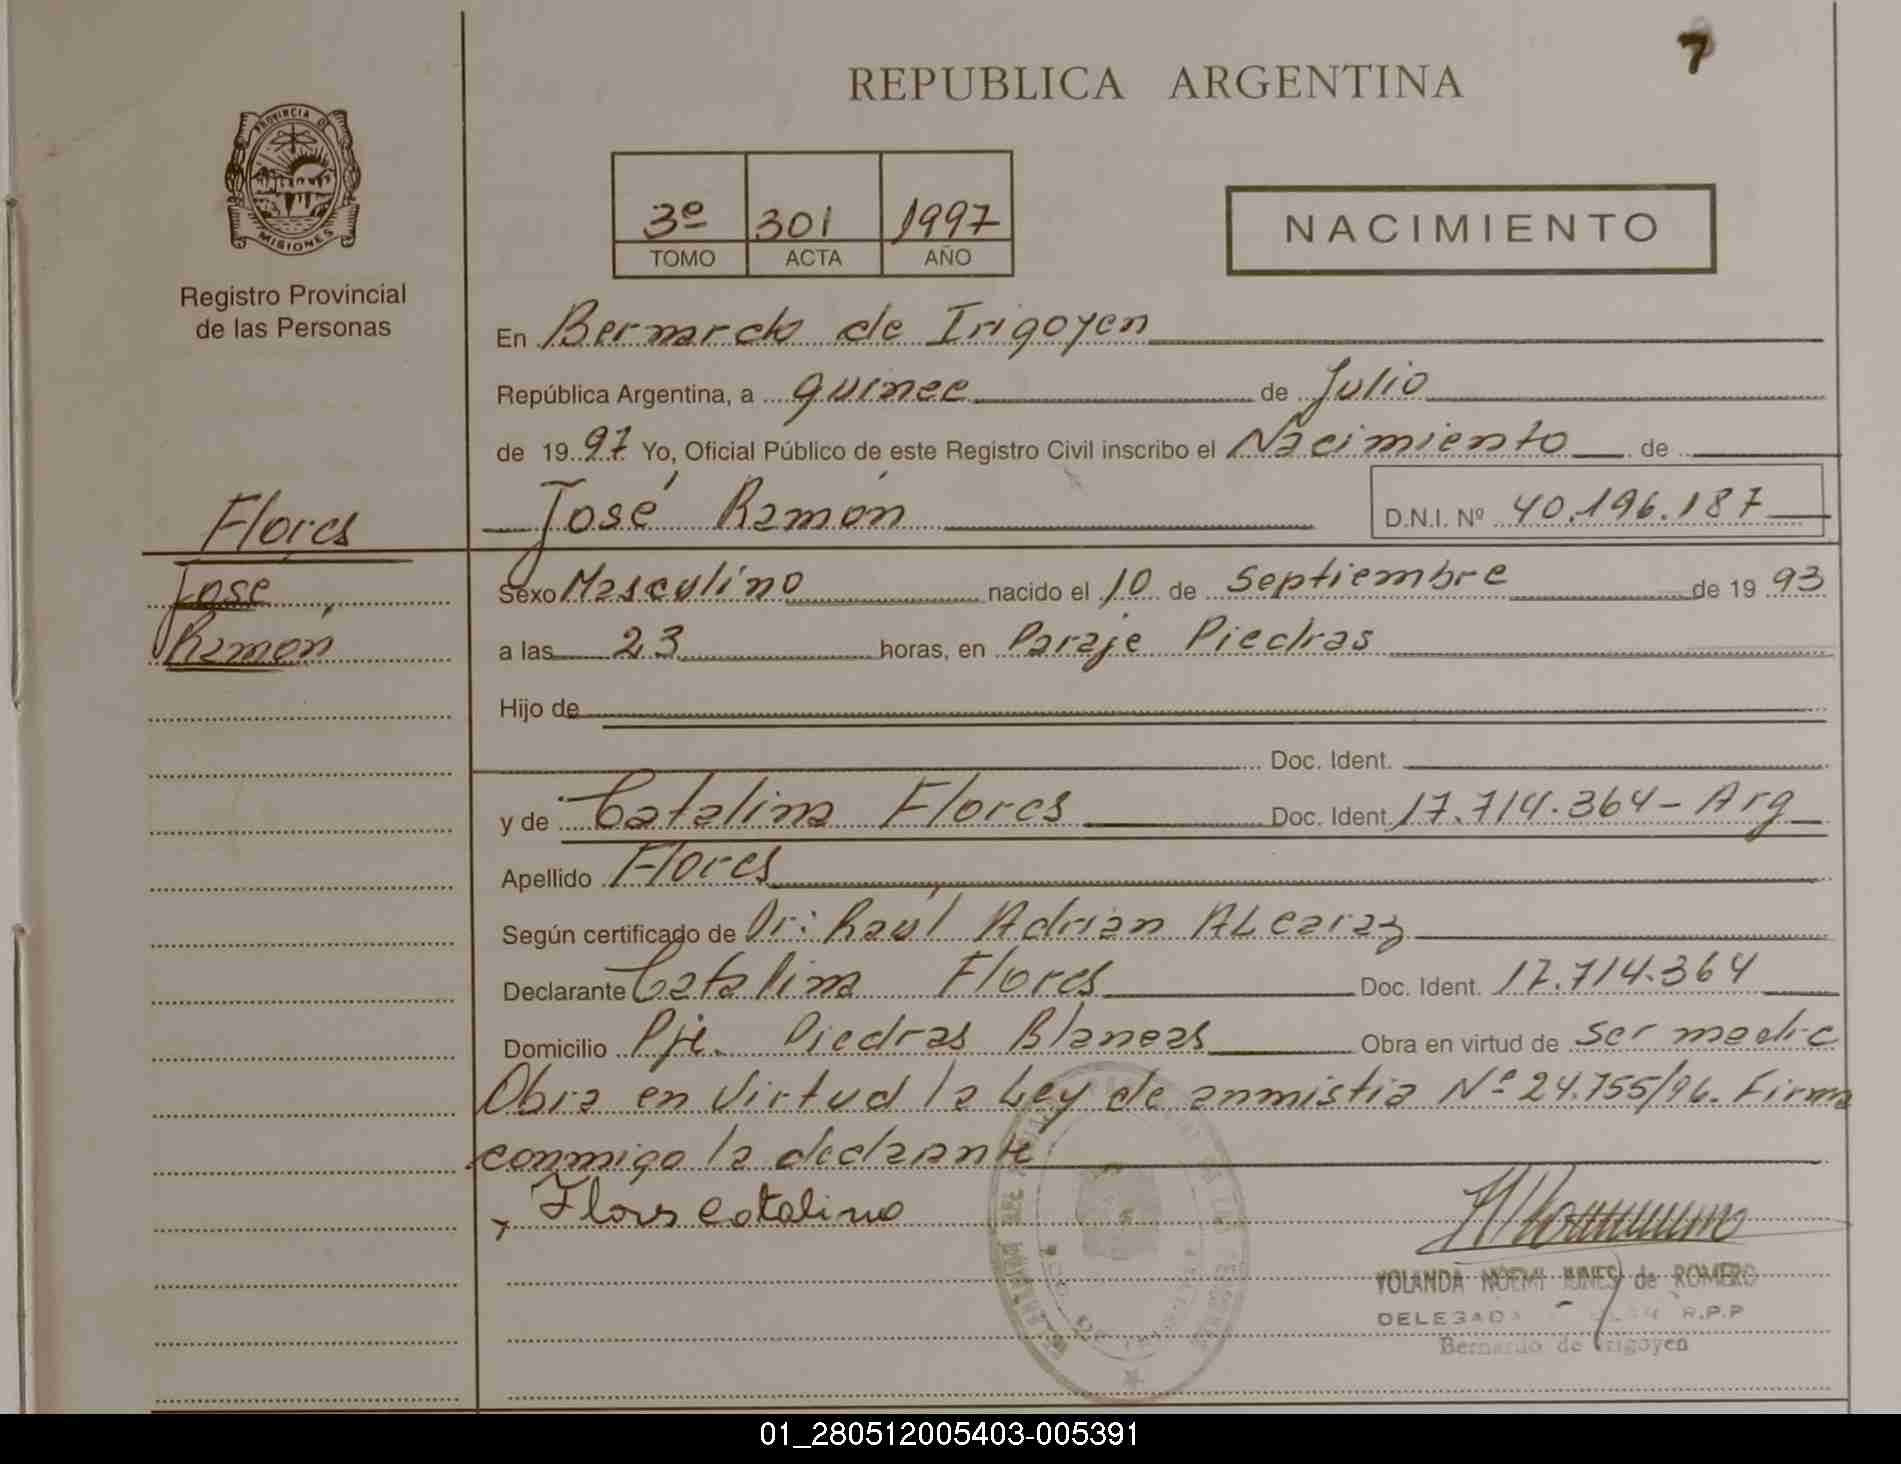 7
REPUBLICA ARGENTINA
PROVINCIA DE
MISIONES
Registro Provincial
de las Personas
3º 301 1997
TOMO ACTA AÑO
NACIMIENTO
En Bernardo de Irigoyen
República Argentina, a quince de Julio
de 1997 Yo, Oficial Público de este Registro Civil inscribo el Nacimiento de
José Ramón D.N.I. Nº 40.196.187
Flores
José
Ramón
Sexo Masculino nacido el 10 de Septiembre de 1993
a las 23 horas, en Paraje Piedras
Hijo de
Doc. Ident.
y de Catalina Flores Doc. Ident. 17.714.364 - Arg
Apellido Flores
Según certificado de Dr: Raúl Adrian Alcaraz
Declarante Catalina Flores Doc. Ident. 17.714.364
Domicilio Pje. Piedras Blancas Obra en virtud de ser madre
Obra en virtud la Ley de anmistia Nº 24.755/96. Firma
conmigo la declarante
x Flores Catalina
YOLANDA NOEMI NUNES de ROMERO
DELEGADA R.P.P
Bernardo de Irigoyen
01_280512005403-005391